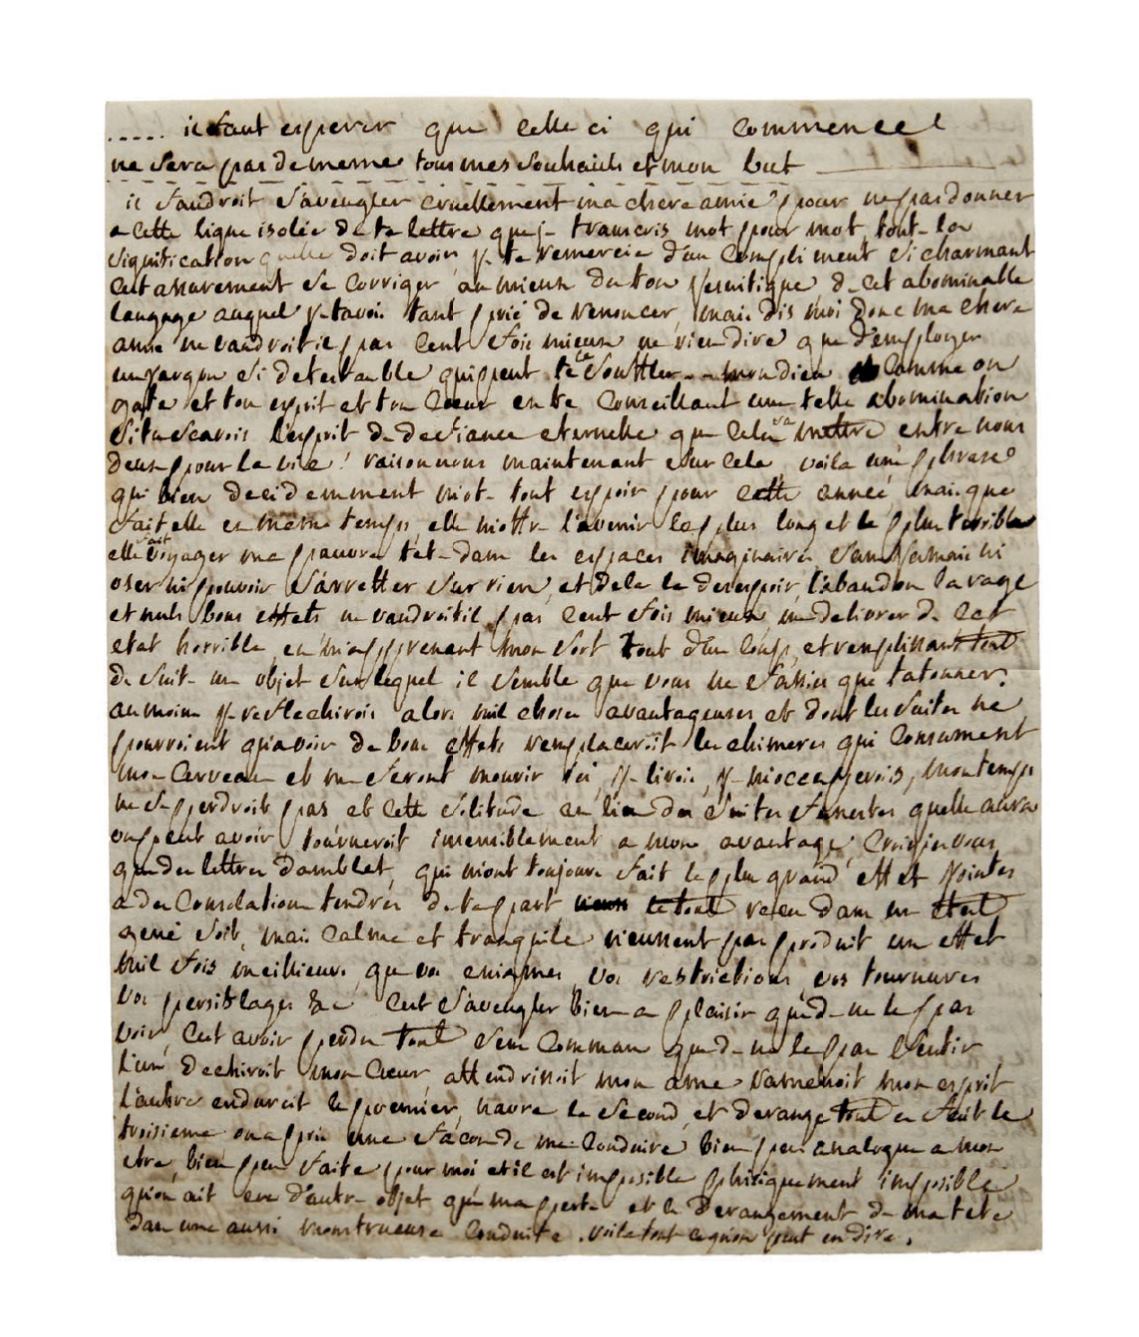 ..... il faut esperer que celle ci qui commence
ne sera pas de meme tous mes souhaits et mon but
il faudroit s'aveugler cruellement ma chere amie pour ne pas donner
a cette ligne isolée de ta lettre que je transcris mot pour mot, tout la
signification quelle doit avoir, je te remercie d'un compliment si charmant
cest assurement se corriger au mieux du ton jesuitique de cet abominable
langage auquel je tavois tant prié de renoncer, mais dis moi donc ma chere
amie ne vaudroit il pas cent fois mieux ne rien dire que d'employer
un jargon si detestable qui peut te le souffler -- mon dieu comme on
gate et ton esprit et ton cœur en te conseillant une telle abomination
si tu scavois l'esprit de defiance eternelle que cela va mettre entre nous
deux pour la vie! raisonnons maintenant sur cela, voila une phrase
qui bien decidemment m'ote tout espoir pour cette année mais que
fait elle en même temps, elle m'offre l'avenir le plus long et le plus terrible
elle fait voyager ma pauvre tete dans les espaces imaginaires sans jamais ni
oser ni pouvoir s'arretter sur rien, et dela le desespoir, l'abandon la rage
et nuls bons effets ne vaudroit il pas cent fois mieux me delivrer de cet
etat horrible, en m'apprenant mon sort tout d'un coup, et remplissant
de suite un objet sur lequel il semble que vous ne fassiés que tatonner.
au moins je reflechirois alors mil choses avantageuses et dont les suites ne
pourroient qu'avoir de bons effets remplaceroit les chimeres qui consument
mon cerveau et me feront mourir ici, je lirois, je m'occuperois, mon temps
ne se perdroit pas et cette solitude au lieu des suites funestes quelle aura
ou peut avoir tourneroit insensiblement a mon avantage; croiriés vous
que des lettres damblet, qui m'ont toujours fait le plus grand effet jointes
a des consolations tendres de ta part recu dans un
gené soit, mais calme et tranquile n'eussent pas produit un effet
mil fois meilleurs que vos enigmes, vos restrictions, vos tournures
vos persiflages &c cest s'aveugler bien a plaisir que de ne le pas
voir, cest avoir perdu tout sens commun que de ne le pas sentir
l'un dechiroit mon cœur, attendrissoit mon ame ramenoit mon esprit
l'autre endurcit le premier, navre le second, et derange tout a fait le
troisieme on a pris une facon de me conduire bien peu analogue a mon
etre, bien peu faite pour moi et il est impossible phisiquement impossible
qu'on ait eu d'autre objet que ma perte et le derangement de ma tete
dans une aussi monstrueuse conduite. voila tout ce qu'on peut en dire.